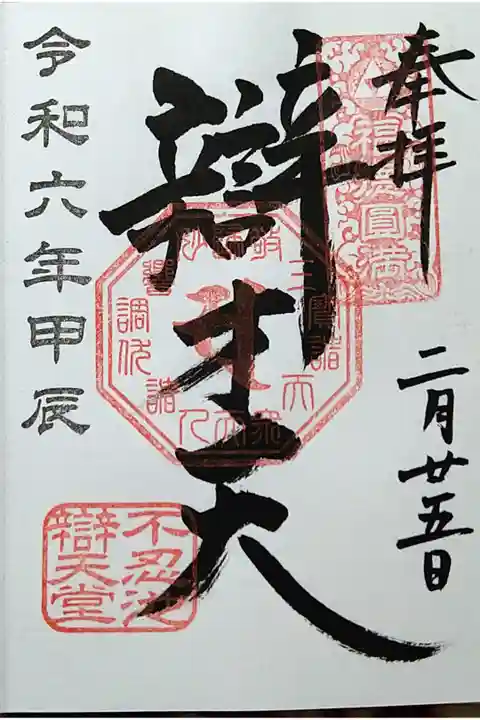 奉拝
二月廿五日
福壽圓満
辯才天
不忍池
辯天堂
令和六年甲辰